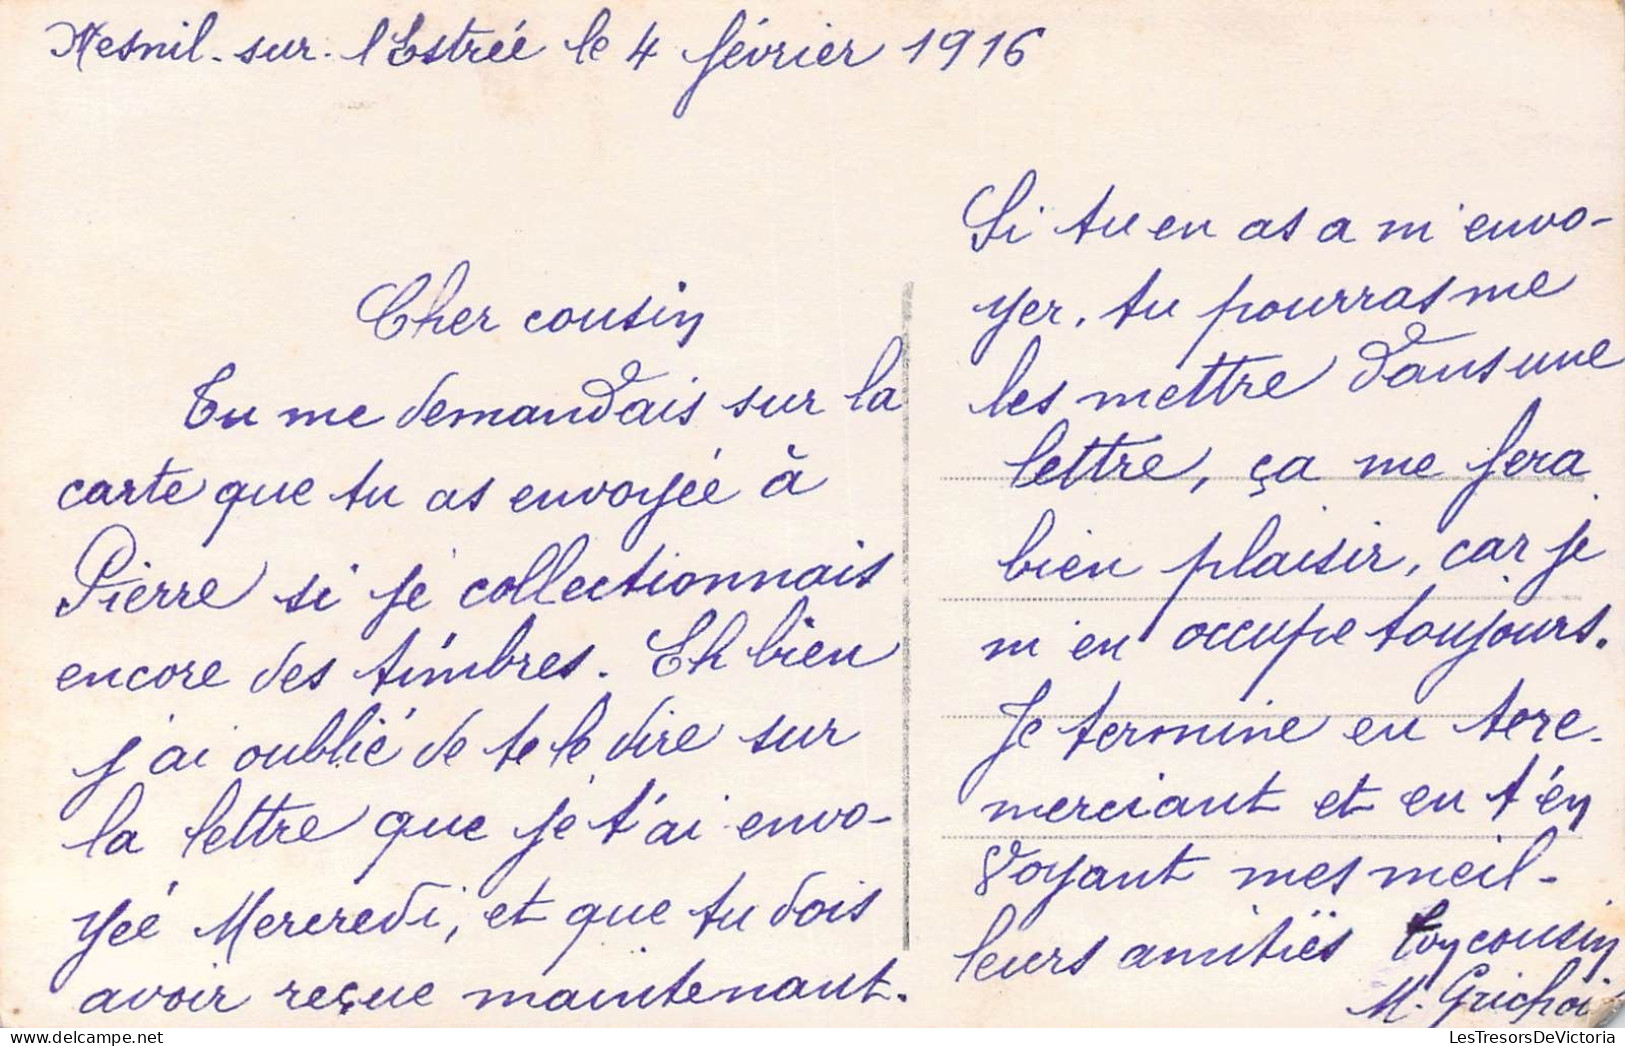 Mesnil-sur-l'Estrée le 4 février 1916
Cher cousin
Tu me demandais sur la
carte que tu as envoyée à
Pierre si je collectionnais
encore des timbres. Eh bien
j'ai oublié de te le dire sur
la lettre que je t'ai envo-
yée Mercredi, et que tu dois
avoir reçue maintenant.
Si tu en as a m'envo-
yer, tu pourras me
les mettre dans une
lettre, ça me fera
bien plaisir, car je
m'en occupe toujours.
Je termine en te re-
merciant et en t'en
voyant mes meil-
leurs amitiés Ton cousin
M.
LesTresorsDeVictoria